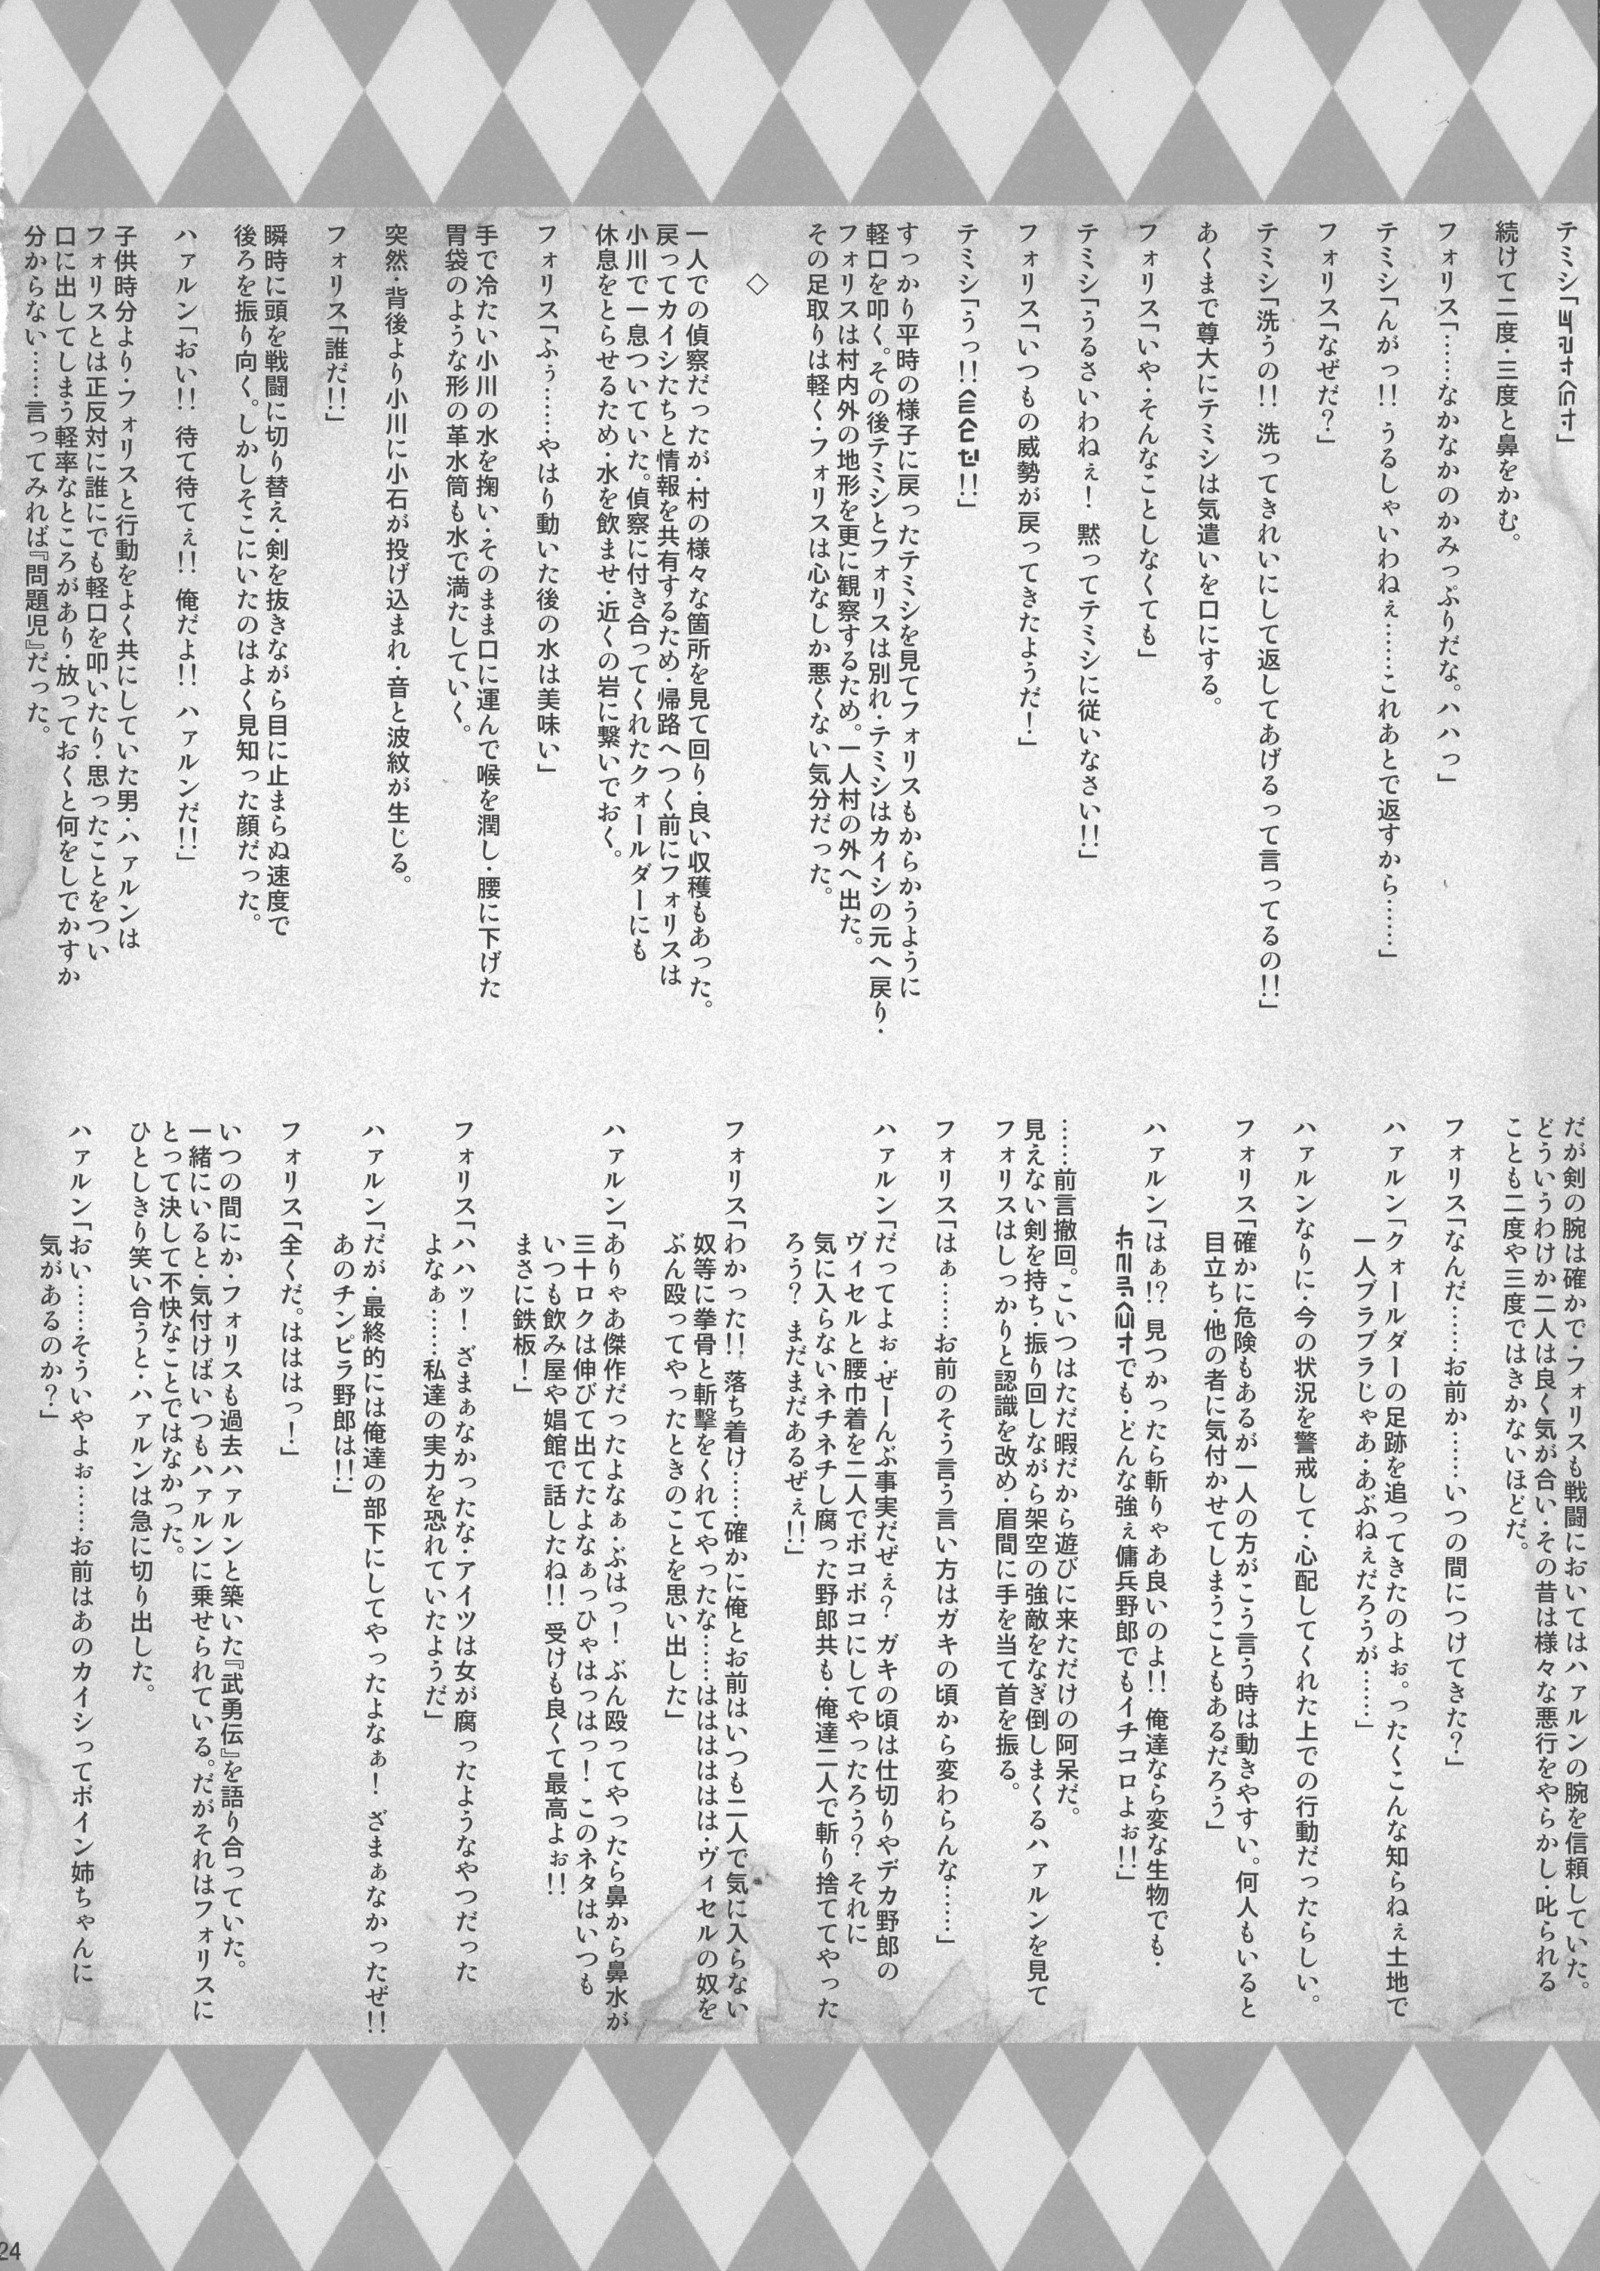 テミシ「
続けて二度・三度と鼻をかむ。
フォリス「……なかなかのかみっぷりだな。ハハっ」
テミシ「んがっ!! うるしゃいわねぇ……これあとで返すから……」
フォリス「なぜだ？」
テミシ「洗うの!! 洗ってきれいにして返してあげるって言ってるの!!」
あくまで尊大にテミシは気遣いを口にする。
フォリス「いや・そんなことしなくても」
テミシ「うるさいわねぇ！ 黙ってテミシに従いなさい!!」
フォリス「いつもの威勢が戻ってきたようだ！」
テミシ「うっ!!
すっかり平時の様子に戻ったテミシを見てフォリスもからかうように
軽口を叩く。その後テミシとフォリスは別れ・テミシはカイシの元へ戻り・
フォリスは村内外の地形を更に観察するため。一人村の外へ出た。
その足取りは軽く・フォリスは心なしか悪くない気分だった。
◇
一人での偵察だったが・村の様々な箇所を見て回り・良い収穫もあった。
戻ってカイシたちと情報を共有するため・帰路へつく前にフォリスは
小川で一息ついていた。偵察に付き合ってくれたクォールダーにも
休息をとらせるため・水を飲ませ・近くの岩に繋いでおく。
フォリス「ふぅ……やはり動いた後の水は美味い」
手で冷たい小川の水を掬い・そのまま口に運んで喉を潤し・腰に下げた
胃袋のような形の革水筒も水で満たしていく。
突然・背後より小川に小石が投げ込まれ・音と波紋が生じる。
フォリス「誰だ!!」
瞬時に頭を戦闘に切り替え・剣を抜きながら目に止まらぬ速度で
後ろを振り向く。しかしそこにいたのはよく見知った顔だった。
ハァルン「おい!! 待て待てぇ!! 俺だよ!! ハァルンだ!!」
子供時分より・フォリスと行動をよく共にしていた男・ハァルンは
フォリスとは正反対に誰にでも軽口を叩いたり・思ったことをつい
口に出してしまう軽率なところがあり・放っておくと何をしでかすか
分からない……言ってみれば『問題児』だった。
だが剣の腕は確かで・フォリスも戦闘においてはハァルンの腕を信頼していた。
どういうわけか二人は良く気が合い・その昔は様々な悪行をやらかし・叱られる
ことも二度や三度ではきかないほどだ。
フォリス「なんだ……お前か……いつの間につけてきた？」
ハァルン「クォールダーの足跡を追ってきたのよぉ。ったくこんな知らねぇ土地で
一人ブラブラじゃあ・あぶねぇだろうが……」
ハァルンなりに・今の状況を警戒して・心配してくれた上での行動だったらしい。
フォリス「確かに危険もあるが一人の方がこう言う時は動きやすい。何人もいると
目立ち・他の者に気付かせてしまうこともあるだろう」
ハァルン「はぁ!? 見つかったら斬りゃあ良いのよ!! 俺達なら変な生物でも・
でも・どんな強ぇ傭兵野郎でもイチコロよぉ!!」
……前言撤回。こいつはただ暇だから遊びに来ただけの阿呆だ。
見えない剣を持ち・振り回しながら架空の強敵をなぎ倒しまくるハァルンを見て
フォリスはしっかりと認識を改め・眉間に手を当て首を振る。
フォリス「はぁ……お前のそう言う言い方はガキの頃から変わらんな……」
ハァルン「だってよぉ・ぜーんぶ事実だぜぇ？ ガキの頃は仕切りやデカ野郎の
ヴィセルと腰巾着を二人でボコボコにしてやったろう？ それに
気に入らないネチネチし腐った野郎共も・俺達二人で斬り捨ててやった
ろう？ まだまだあるぜぇ!!」
フォリス「わかった!! 落ち着け……確かに俺とお前はいつも二人で気に入らない
奴等に拳骨と斬撃をくれてやったな……はははははは・ヴィセルの奴を
ぶん殴ってやったときのことを思い出した」
ハァルン「ありゃあ傑作だったよなぁ・ぶはっ！ ぶん殴ってやったら鼻から鼻水が
三十ロクは伸びて出てたよなぁっひゃはっはっ！ このネタはいつも
いつも飲み屋や娼館で話したね!! 受けも良くて最高よぉ!!
まさに鉄板！」
フォリス「ハハッ！ ざまぁなかったな・アイツは女が腐ったようなやつだった
よなぁ……私達の実力を恐れていたようだ」
ハァルン「だが・最終的には俺達の部下にしてやったよなぁ！ ざまぁなかったぜ!!
あのチンピラ野郎は!!」
フォリス「全くだ。はははっ！」
いつの間にか・フォリスも過去ハァルンと築いた『武勇伝』を語り合っていた。
一緒にいると・気付けばいつもハァルンに乗せられている。だがそれはフォリスに
とって決して不快なことではなかった。
ひとしきり笑い合うと・ハァルンは急に切り出した。
ハァルン「おい……そういやよぉ……お前はあのカイシってボイン姉ちゃんに
気があるのか？」
24